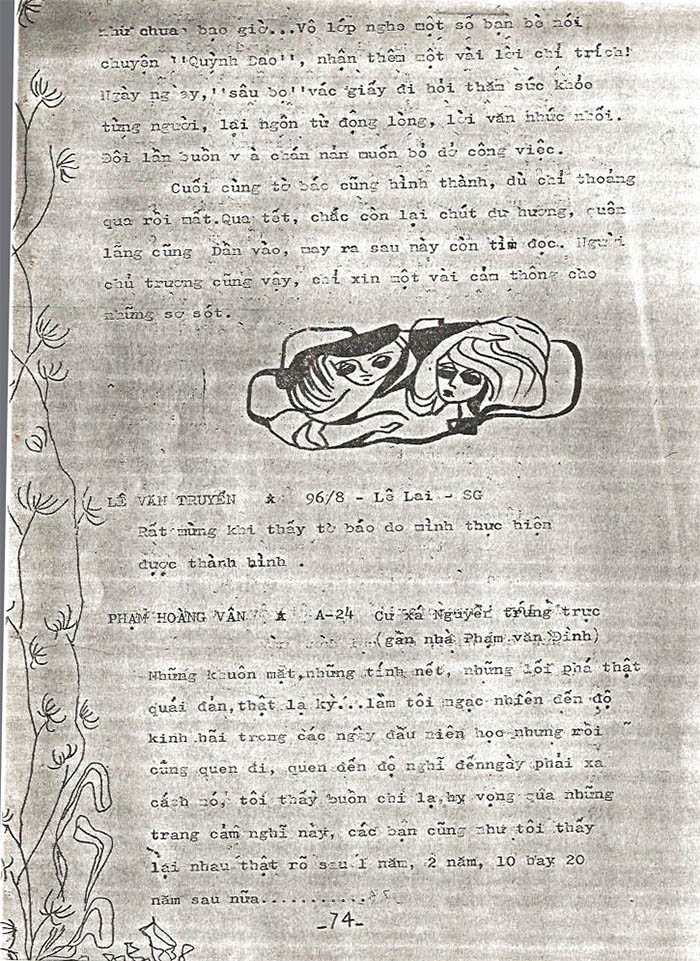 như chưa bao giờ...Vô lớp nghe một số bạn bè nói
chuyện ''Quỳnh Dao'', nhận thêm một vài lời chỉ trích!
Ngày ngày,''sâu bọ''vác giấy đi hỏi thăm sức khỏe
từng người, lại ngôn từ động lòng, lời văn nhức nhối.
Đôi lần buồn v à chán nản muốn bỏ dở công việc.
Cuối cùng tờ báo cũng hình thành, dù chỉ thoáng
qua rồi mất.Qua tết, chắc còn lại chút dư hương, quên
lãng cũng Dần vào, may ra sau này còn tìm đọc. Người
chủ trương cũng vậy, chỉ xin một vài cảm thông cho
những sơ sót.
LÊ VĂN TRUYỀN ★ 96/8 - Lê Lai - SG
Rất mừng khi thấy tờ báo do mình thực hiện
được thành hình .
PHẠM HOÀNG VÂN ★ A-24 Cư xá Nguyễn trung trực
(gần nhà Phạm văn Đình)
Những khuôn mặt,những tính nết, những lối phá thật
quái đản,thật lạ kỳ...làm tôi ngạc nhiên đến độ
kinh hãi trong các ngày đầu niên học nhưng rồi
cũng quen đi, quen đến độ nghĩ đếnngày phải xa
cách nó, tôi thấy buồn chi lạ,hy vọng qua những
trang cảm nghĩ này, các bạn cũng như tôi thấy
lại nhau thật rõ sau 1 năm, 2 năm, 10 hay 20
năm sau nữa...........
_74_